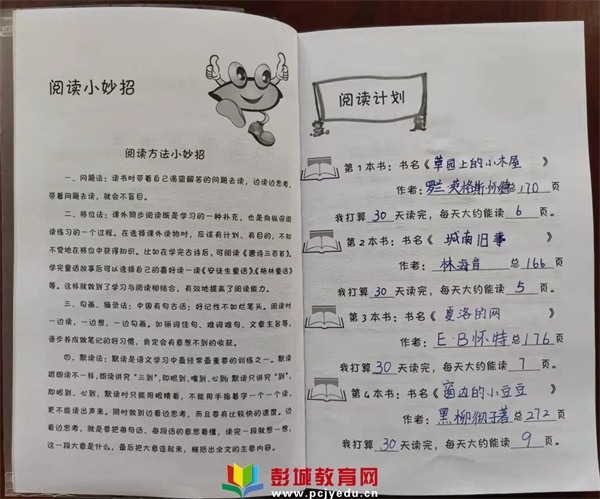 阅读小妙招
阅读方法小妙招
一、问题法：读书时带着自己渴望解答的问题去读，边读边思考，
带着问题去读，就会不盲目。
二、移位法：课外同步阅读既是学习的一种补充，也是向纵深阅
读练习的一个过程。在选择课外读物时，应该有计划、有目的，不知
不觉地在移位中获得知识。比如在学完古诗后，可阅读《唐诗三百首》，
学完童话故事后可以选择自己的喜好读一读《安徒生童话》、《格林童话》
等。这样就做到了学习与阅读相结合，有效地提高了阅读能力。
三、勾画、摘录法：中国有句古话：好记性不如烂笔头。阅读时
一边读，一边想，一边勾画。如丽词佳句、难词难句、文章主旨等，
逐步养成做笔记的好习惯，肯定会有意想不到的收获。
四、默读法：默读是语文学习中最经常最重要的训练之一。默读
跟朗读不一样，朗读讲究“三到”，即眼到、嘴到、心到；默读只讲究“到”，
即眼到、心到，默读时只能用眼睛看，不能用手指着字一个一个读，
更不能读出声来。同时做到边看边思考，而且要有比较快的速度。边
看边思考，就是要把每句话、每段话的意思看懂，读完一段就想一想，
这一段大意是什么，最后把大意连起来，概括出全文的主要内容。
阅读计划
第1本书：书名《草园上的小木屋》
作者：罗兰·英格斯·怀德 总170页
我打算30天读完，每天大约能读6页。
第2本书：书名《城南旧事》
作者：林海音 总166页
我打算30天读完，每天大约能读5页。
第3本书：书名《夏洛的网》
作者：E·B怀特 总176页
我打算30天读完，每天大约能读7页。
第4本书：书名《窗边的小豆豆》
作者：黑柳彻子著 总272页
我打算30天读完，每天大约能读9页。
彭城教育网
www.pcjyedu.cn